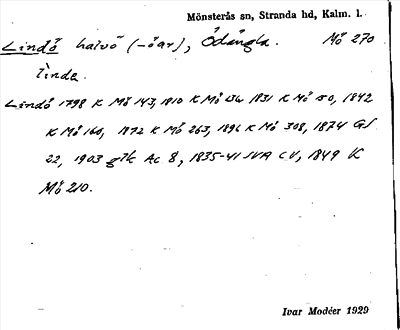 Mönsterås sn, Stranda hd, Kalm. l.
Lindö halvö (-öar), Ödängla. Mö 270
linda.
Lindö 1798 K Mö 143, 1810 K Mö 1831 K Mö 50, 1842
K Mö 160, 1872 K Mö 263, 1896 K Mö 308, 1874 GS
22, 1903 gtk Ac 8, 1835-41 JVA CV, 1849 K
Mö 210.
Ivar Modéer 1929